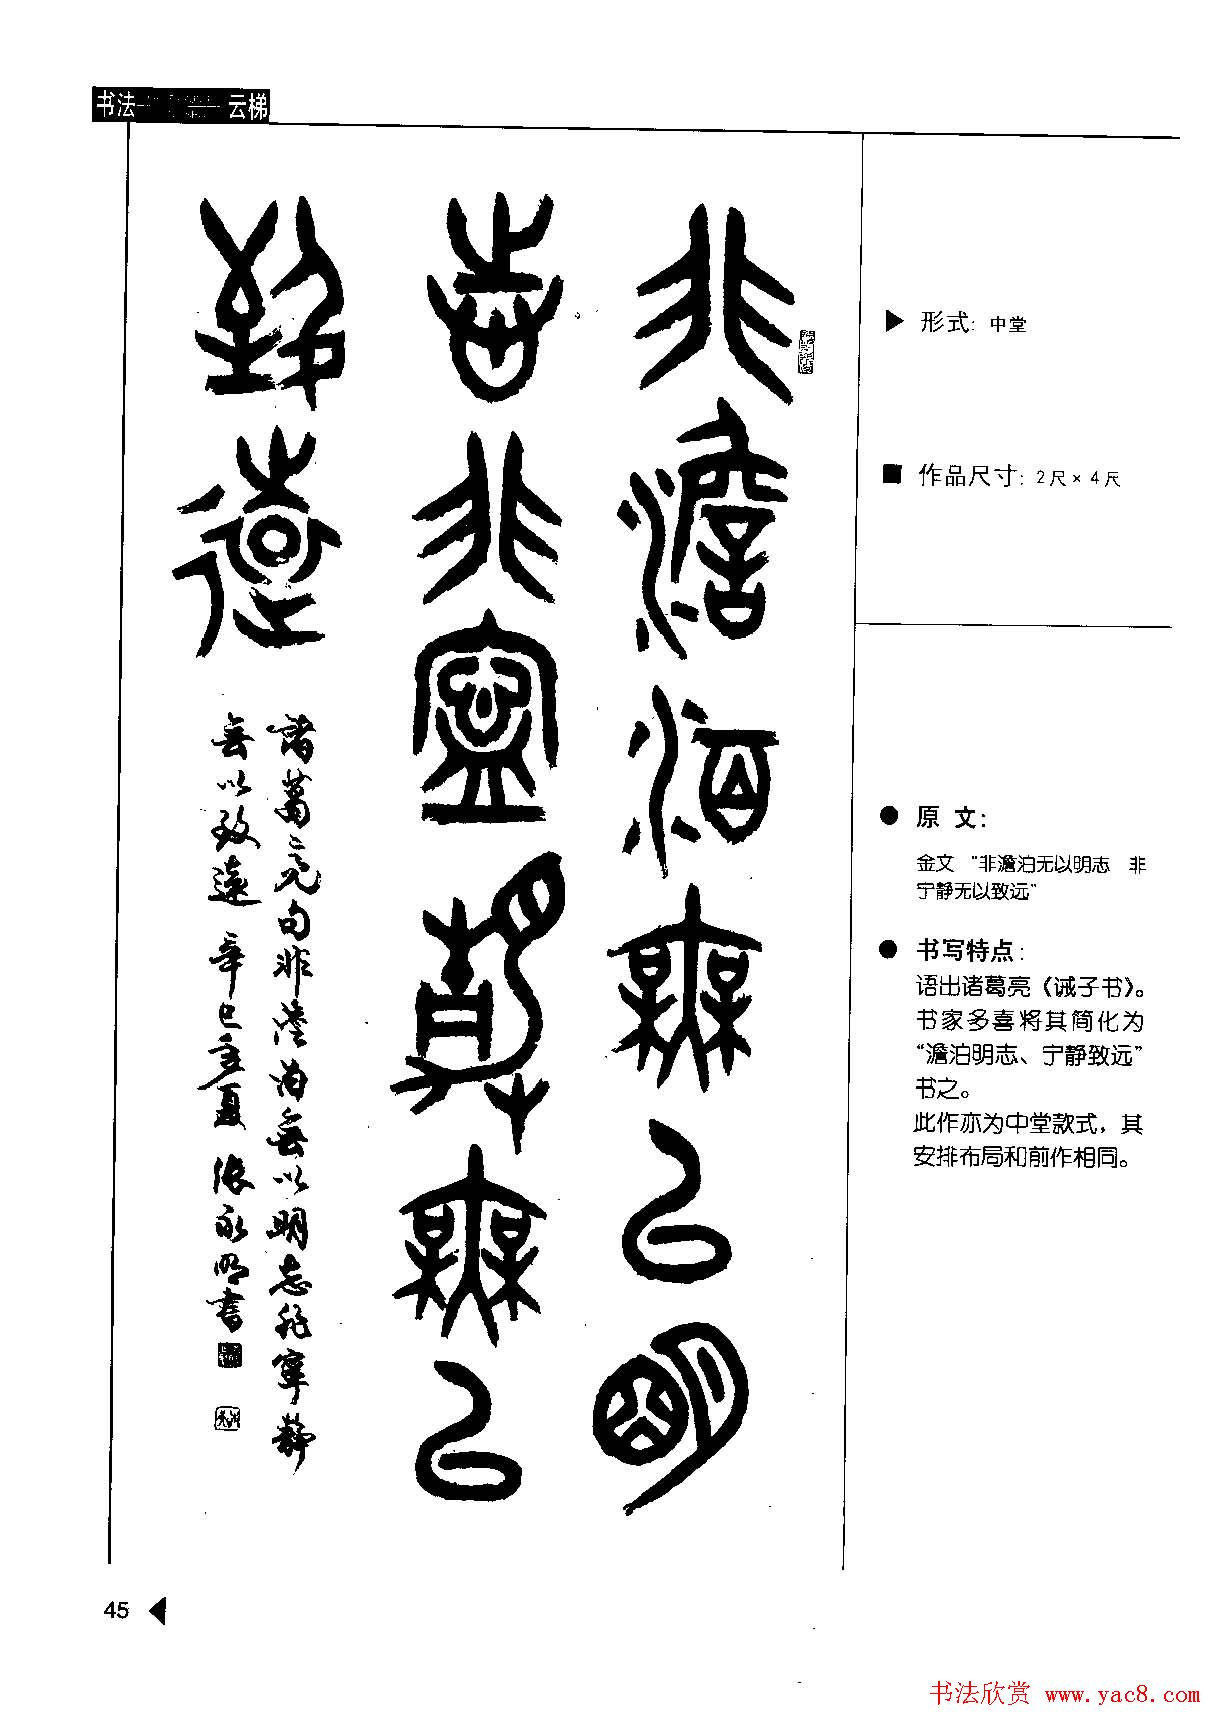 书法
云梯
非澹泊無以明
志非寧靜無以
致遠
諸葛亮句非澹泊無以明志非寧靜
無以致遠 辛巳夏 張永明書
形式: 中堂
作品尺寸: 2尺×4尺
原 文:
金文 "非澹泊无以明志 非
宁静无以致远"
书写特点:
语出诸葛亮《诫子书》。
书家多喜将其简化为
"澹泊明志、宁静致远"
书之。
此作亦为中堂款式，其
安排布局和前作相同。
45
书法欣赏 www.yac8.com